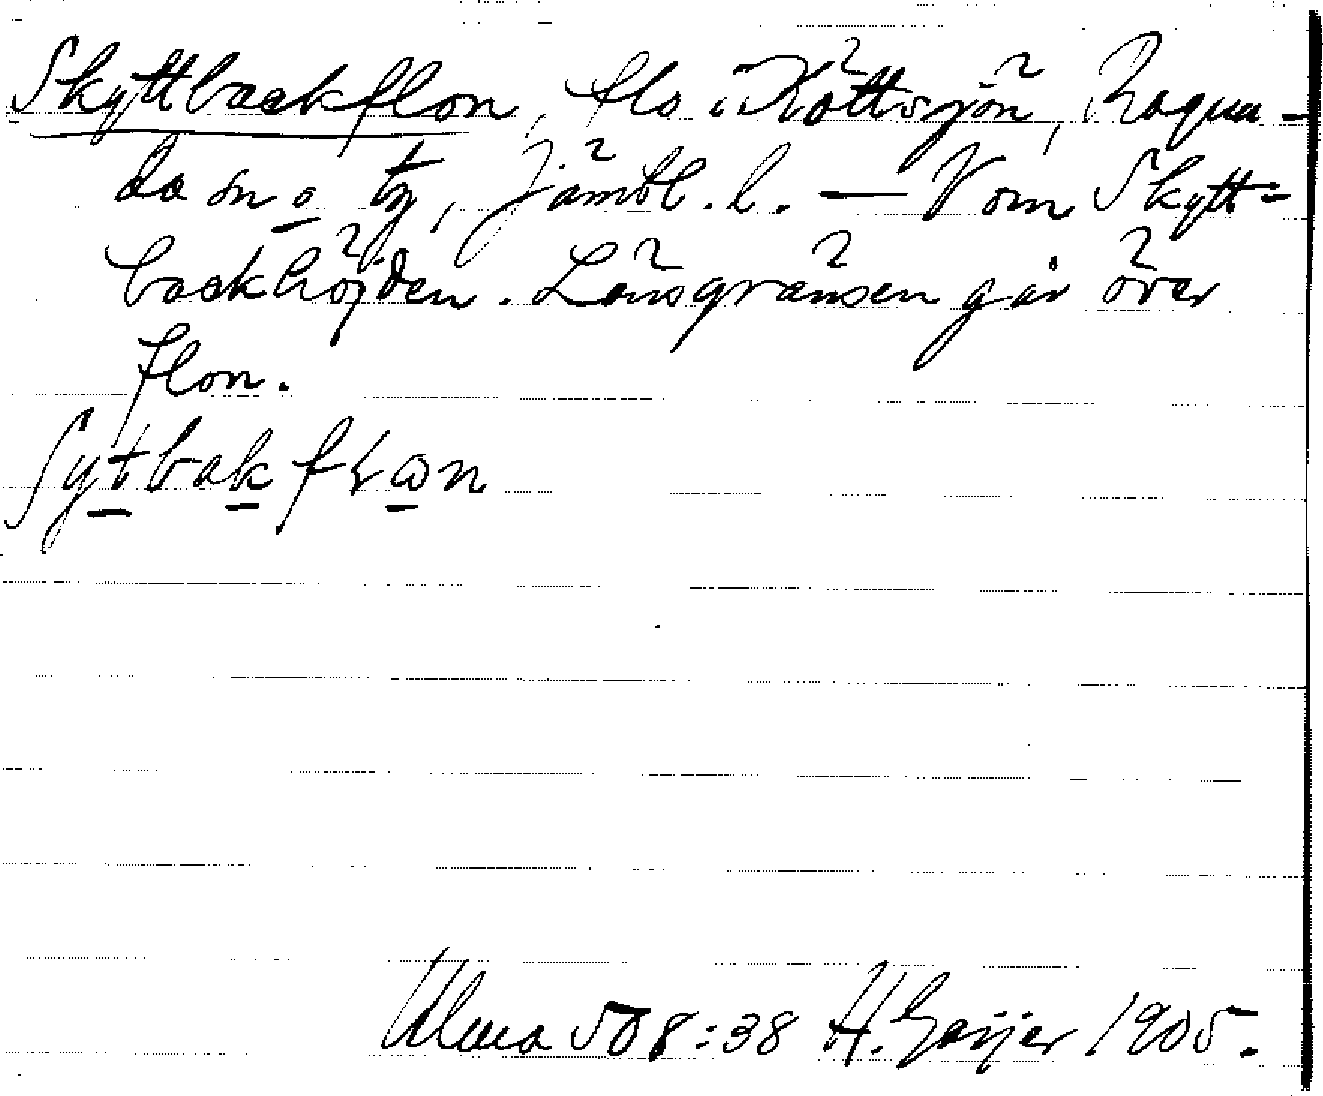 Skyttbackflon, flo i Köttsjön, Ragun-
da sn o tg, Jämtl. l. — Vom Skytt-
backhöjden. Länsgränsen går över
flon.
ʃytbakflɷn
Ulma 508:38 H. Geijer 1905.